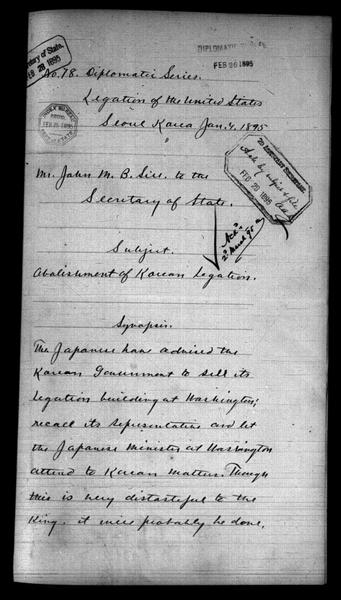 Secretary of State.
FEB 28 1895
DIPLOMATIC
FEB 26 1895
No. 78. Diplomatic Series.
Legation of the United States
Seoul Korea Jan. 4. 1895
Mr. John M. B. Sill to the
Secretary of State.
FEB 28 1895
Ack'd
2 March 95
Subject.
Abolishment of Korean Legation.
Synopsis.
The Japanese have advised the
Korean Government to sell its
legation building at Washington;
recall its representative and let
the Japanese Minister at Washington
attend to Korean matters. Though
this is very distasteful to the
King, it will probably be done.